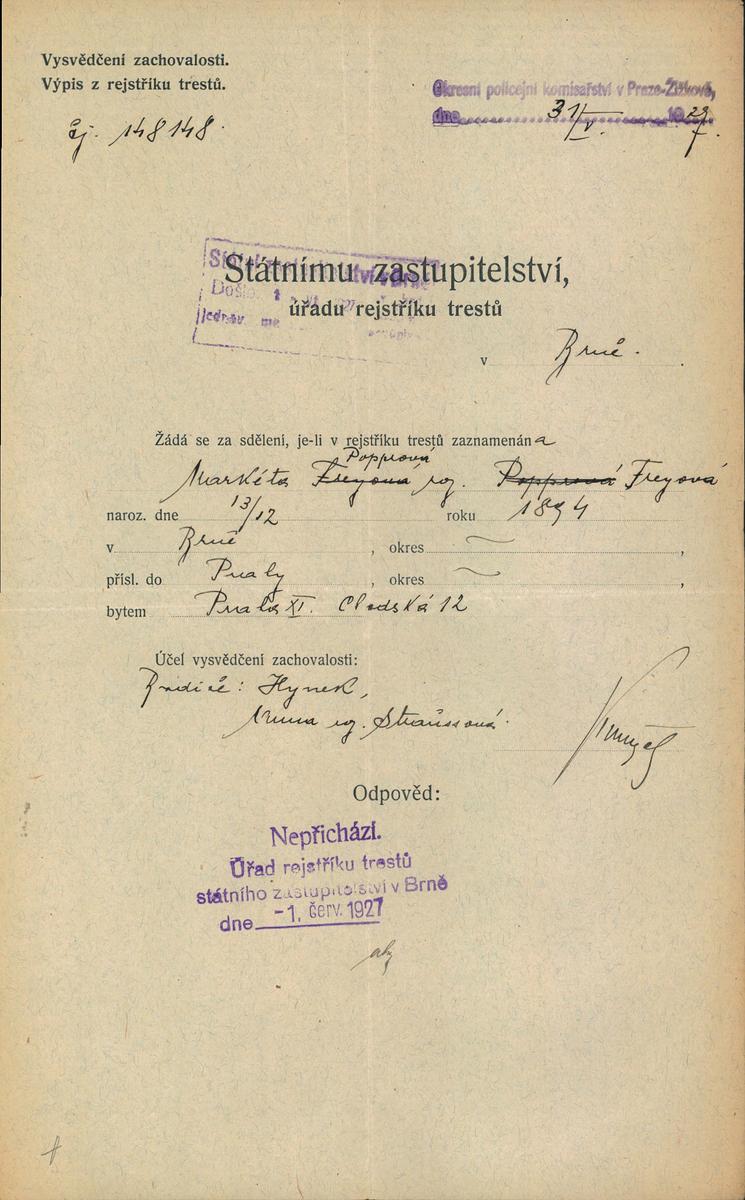 Vysvědčení zachovalosti.
Výpis z rejstříku trestů.
Čj. 148148.
Okresní policejní komisařství v Praze-Žižkově,
dne 31/V. 1927.
Státnímu zastupitelství,
úřadu rejstříku trestů
v Brně.
Žádá se za sdělení, je-li v rejstříku trestů zaznamenána
Popprová
Markéta Freyová roz. Popprová Freyová
naroz. dne 13/12 roku 1894
v Brně, okres ,
přísl. do Prahy, okres ,
bytem Praha XI. 12
Účel vysvědčení zachovalosti:
Rodiče: Hynek,
Anna roz. Straussová.
Odpověd:
Nepřichází.
Úřad rejstříku trestů
státního zastupitelství v Brně
dne -1. červ. 1927